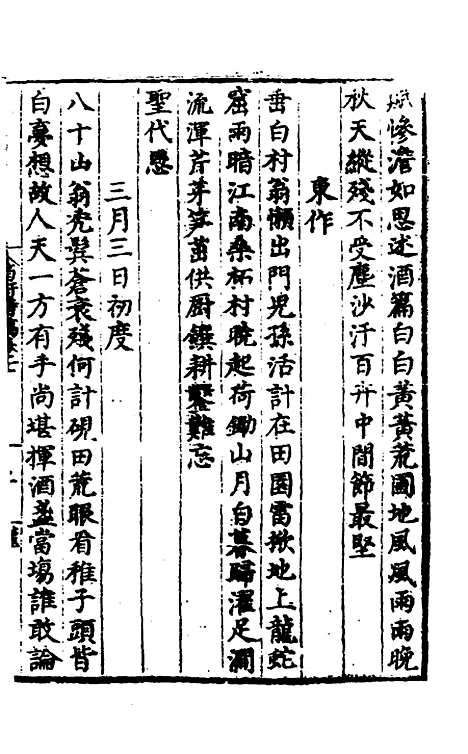 慘澹如思述酒篇白白黃黃荒圃地風風雨雨晚
秋天縱殘不受塵沙汙百卉中間節最堅
東作
垂白村翁懶出門兒孫活計在田園雷掀地上龍蛇
窟雨暗江南桑柘村曉起荷鋤山月白暮歸濯足澗
流渾芹芽笋茁供厨饌耕鑿難忘
聖代恩
三月三日初度
八十山翁禿鬂蒼衰殘何計硯田荒眼看稚子頭皆
白夢想故人天一方有手尚堪揮酒盞當塲誰敢論